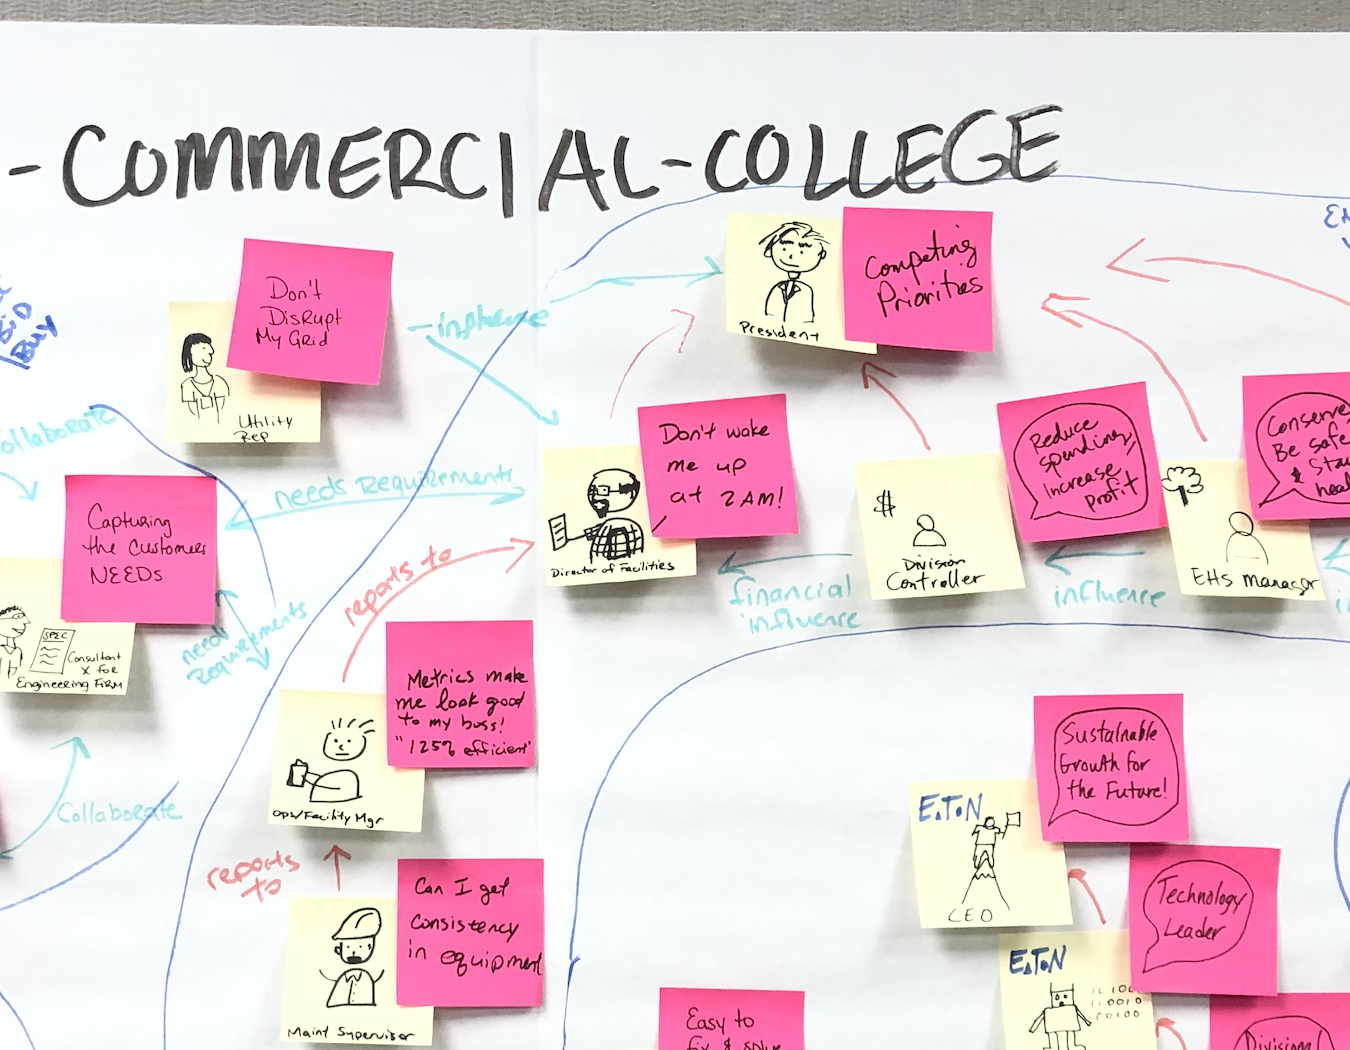 - COMMERCIAL - COLLEGE
Don't
Disrupt
My Grid
Utility
Rep
influence
President
Competing
Priorities
BUY
collaborate
Capturing
the Customers
NEEDs
SPEC
Consultant
X for
Engineering FIRM
needs Requirements
needs
Requirements
reports to
Don't wake
me up
at 2AM!
Director of Facilities
financial
influence
$
Division
Controller
Reduce
spending,
Increase
profit
influence
EHS manager
Conserve
Be safe
& Stay
Metrics make
me look good
to my boss!
"125% efficient"
Ops/Facility Mgr
Collaborate
reports
to
Can I get
Consistency
in equipment
Maint Supervisor
Sustainable
Growth for
the Future!
EATON
CEO
Technology
Leader
EATON
Easy to
fix & solve
Divisional